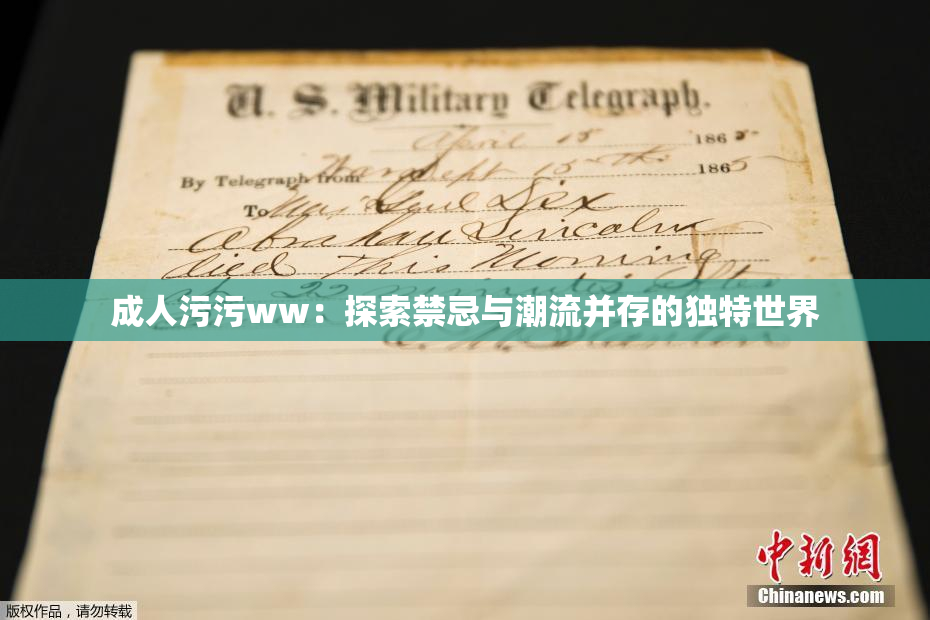 U. S. Military Telegraph.
April 15 1865
By Telegraph from War Dept 15th 1865
To Maj Genl Dix
Abraham Lincoln
died This Morning
at 22 minutes after
成人污污ww：探索禁忌与潮流并存的独特世界
E. M. Stanton
中新网
Chinanews.com
版权作品，请勿转载